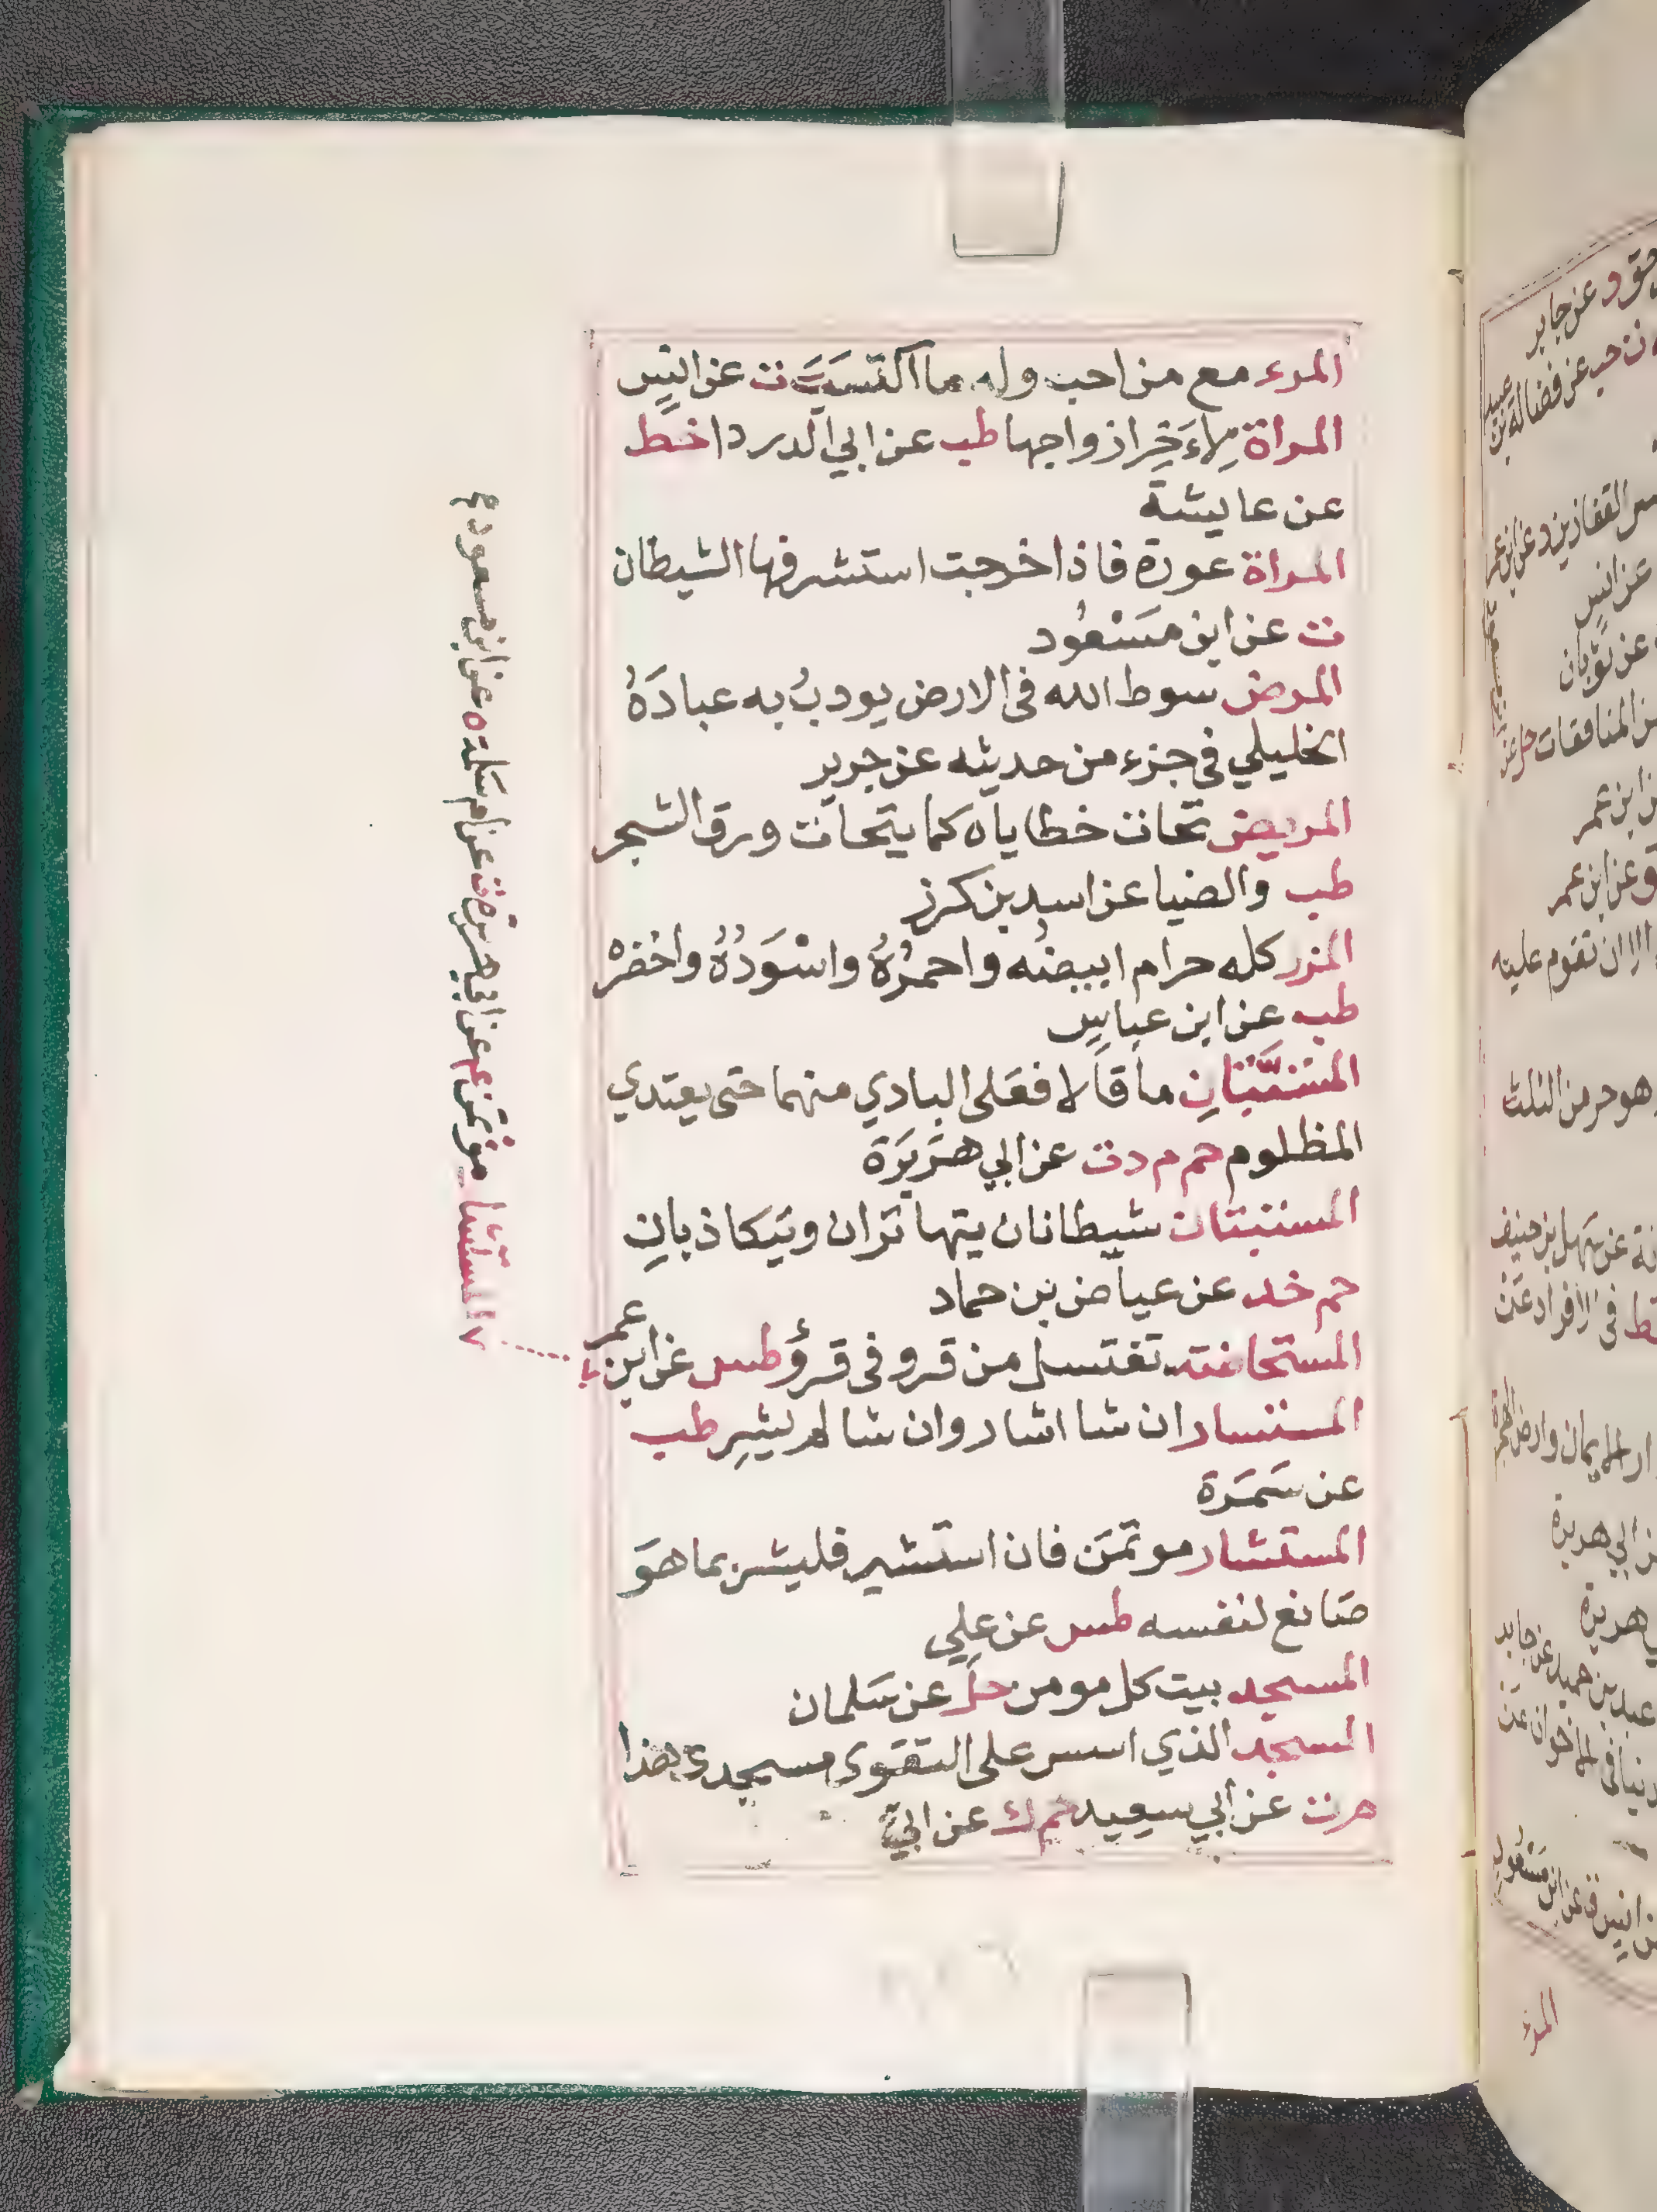 المرء مع من احب وله ما اكتسبت ت عن انس
المراة لاخر ازواجها طب عن ابي الدردا خط
عن عايشة
المراة عورة فاذا خرجت استشرفها الشيطان
ت عن ابن مسعود
المرض سوط الله فى الارض يودب به عباده
الخليلي فى جزء من حديثه عن جرير
المريض تحات خطاياه كما يتحات ورق الشجر
طب والضيا عن اسد بن كرز
المزر كله حرام ابيضه واحمره واسوده واخضره
طب عن ابن عباس
المستبان ما قالا فعلى البادي منهما حتى يعتدي
المظلوم حم م د ت عن ابي هريرة
المستبتان شيطانان يتهاتران ويتكاذبان
حم خد عن عياض بن حماد
المستحاضة تغتسل من قرو فى قرؤ طس عن ابن عمر
المستشار ان شا اشار وان شا لم يشر طب
عن سمرة
المستشار موتمن فان استشير فليشر بما هو
صانع لنفسه طس عن علي
المسجد بيت كل مومن حل عن سلمان
المسجد الذي اسس على التقوى مسجدى هذا
م ت عن ابي سعيد حم ك عن ابي
المستشار موتمن عم عن ابي هريرة ت عن ام سلمة ه عن ابن مسعود
عن جابر
عن انس
عن ثوبان
ابن عمر
عن ابن عمر
الا ان تقوم عليه
هو حر من الثلث
عن سهل بن حنيف
فى الافراد عن
ابي هريرة
هريرة
عبد بن حميد عن جابر
المرء